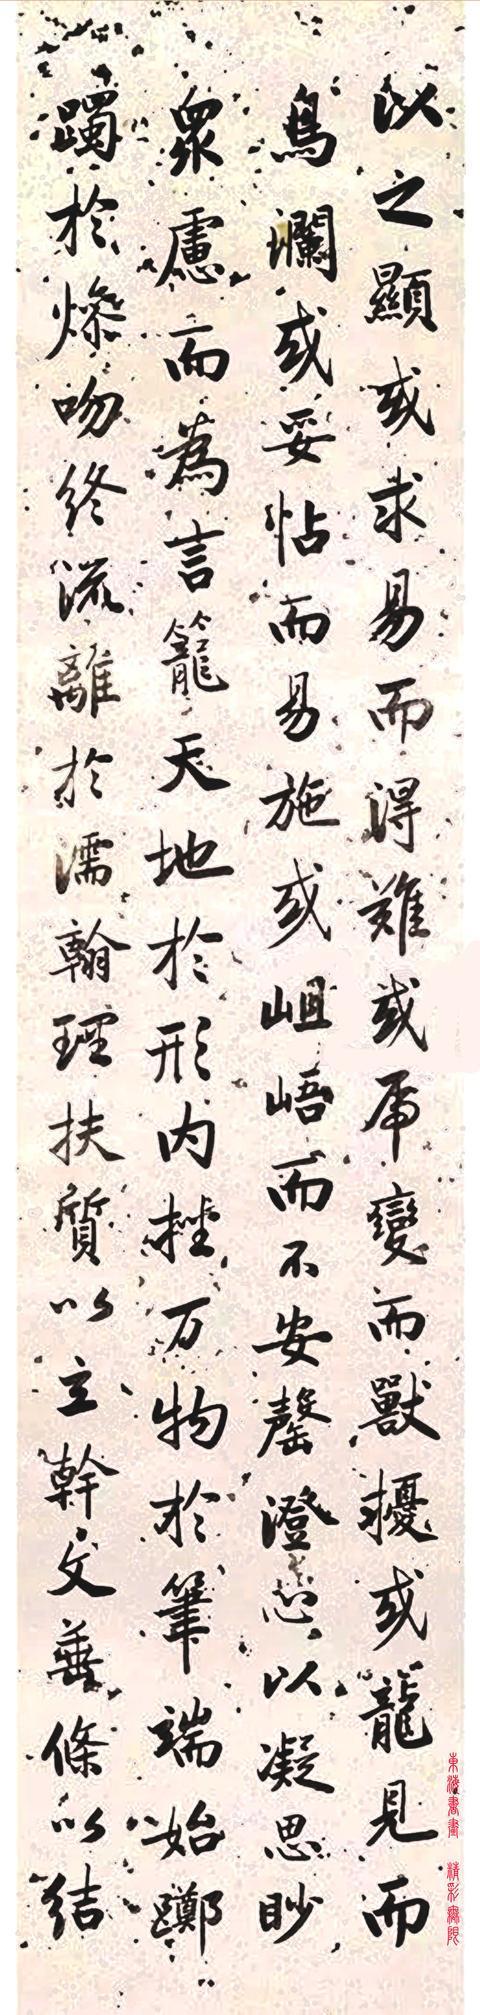 以之顯或求易而得難或虎變而獸擾或龍見而
鳥瀾或妥怗而易施或岨峿而不安罄澄心以凝思眇
衆慮而為言籠天地於形內挫万物於筆端始躑
躅於燥吻終流離於濡翰理扶質以立幹文垂條以結
東海書畫 精彩無限